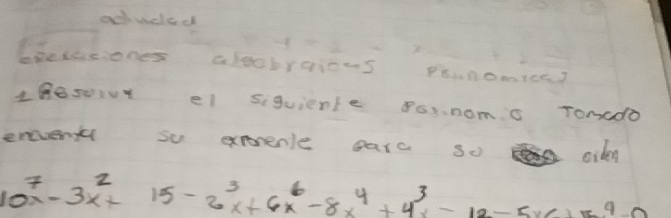 actividad
Expresiones algebraicas Polinomicas
1 Resolver el siguiente Polinomio Tomado
encuenta su exponente para so orden
10x⁷ - 3x² + 15 - 2x³ + 6x⁶ - 8x⁴ + 4x³ - 12 - 5x